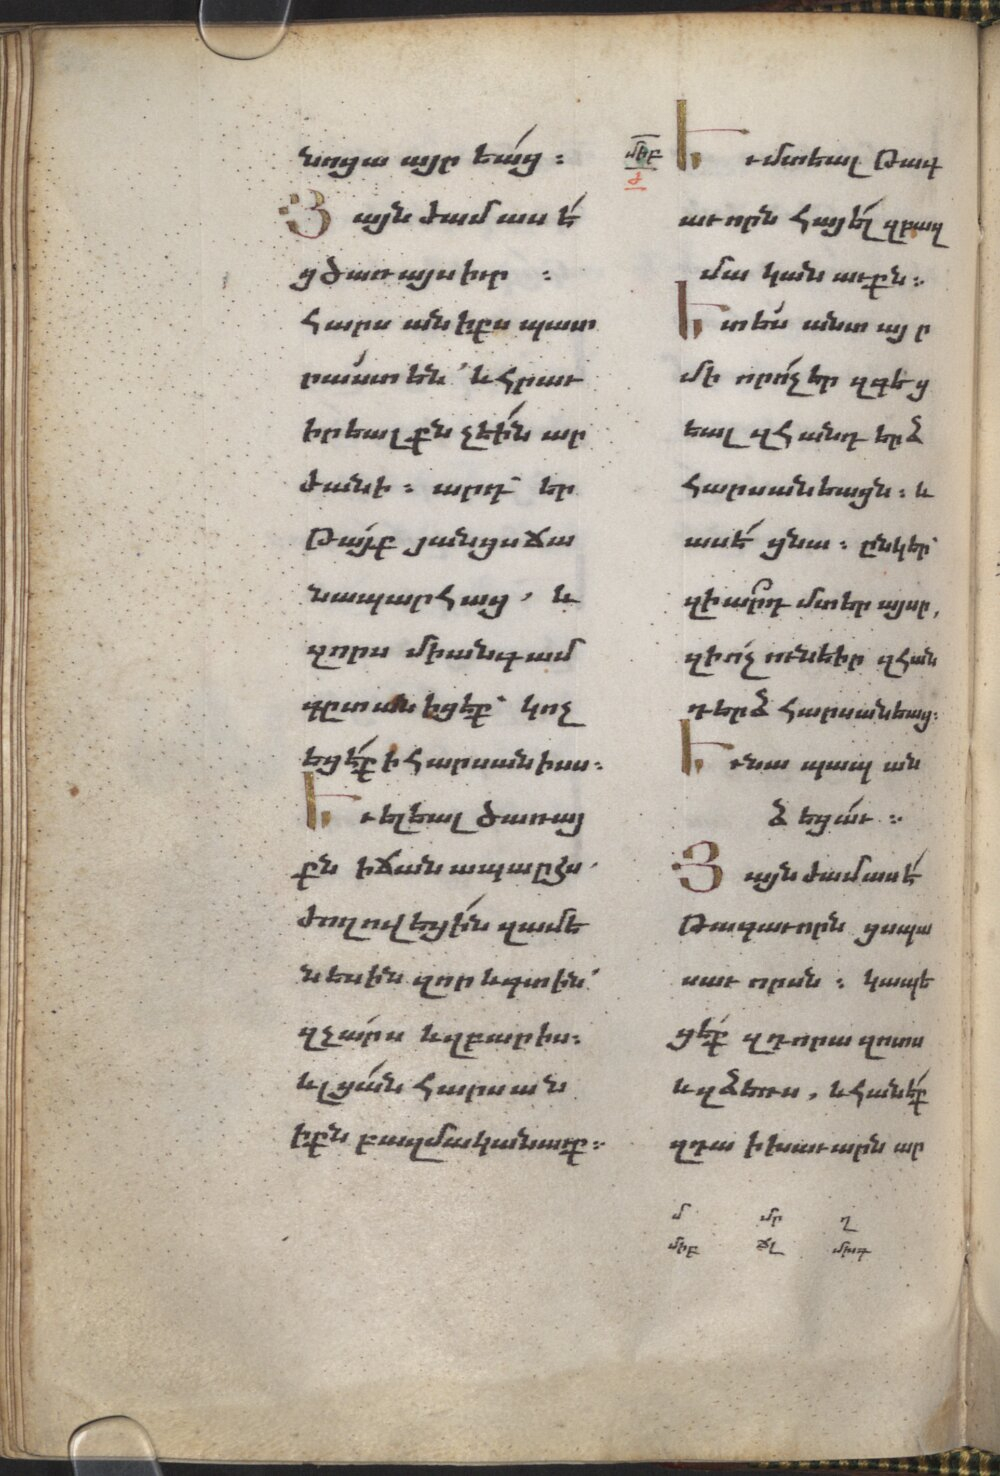 նոցա այր եաց :
Յայնժամ ասէ
ցծառայս իւր :
Հարսանիքս պատ
րաստ են՝ և հրաւ
իրեալքն չէին ար
ժանի : արդ՝ եր
թայք յանցս ճա
նապարհաց , և
զորս միանգամ
գըտանիցէք՝ կոչ
եցէք ի հարսանիսս :
Եւ ելեալ ծառայ
քն ի ճանապարհս՝
ժողովեցին զամե
նեսին զոր և գտին՝
զչարս և զբարիս :
և լցան հարսան
իքն բազմականաւք :
միբ
ժ
Եւ մտեալ թագ
աւորն հայել զբազ
մականաւքն :
Ետես անտ այր
մի որ ոչ էր զգեց
եալ զհանդերձ
հարսանեացն : և
ասէ ցնա : ընկեր՝
զիարդ մտեր այսր ,
զի ոչ ունէիր զհան
դերձ հարսանեաց :
Եւ նա պապան
ձեցաւ :
Յայնժամ ասէ
թագաւորն ցսպա
սաւորսն : կապե
ցէք զդորա զոտս
և զձեռս , և հանէք
զդա ի խաւարն ար
մ մր ղ
միբ ճլ